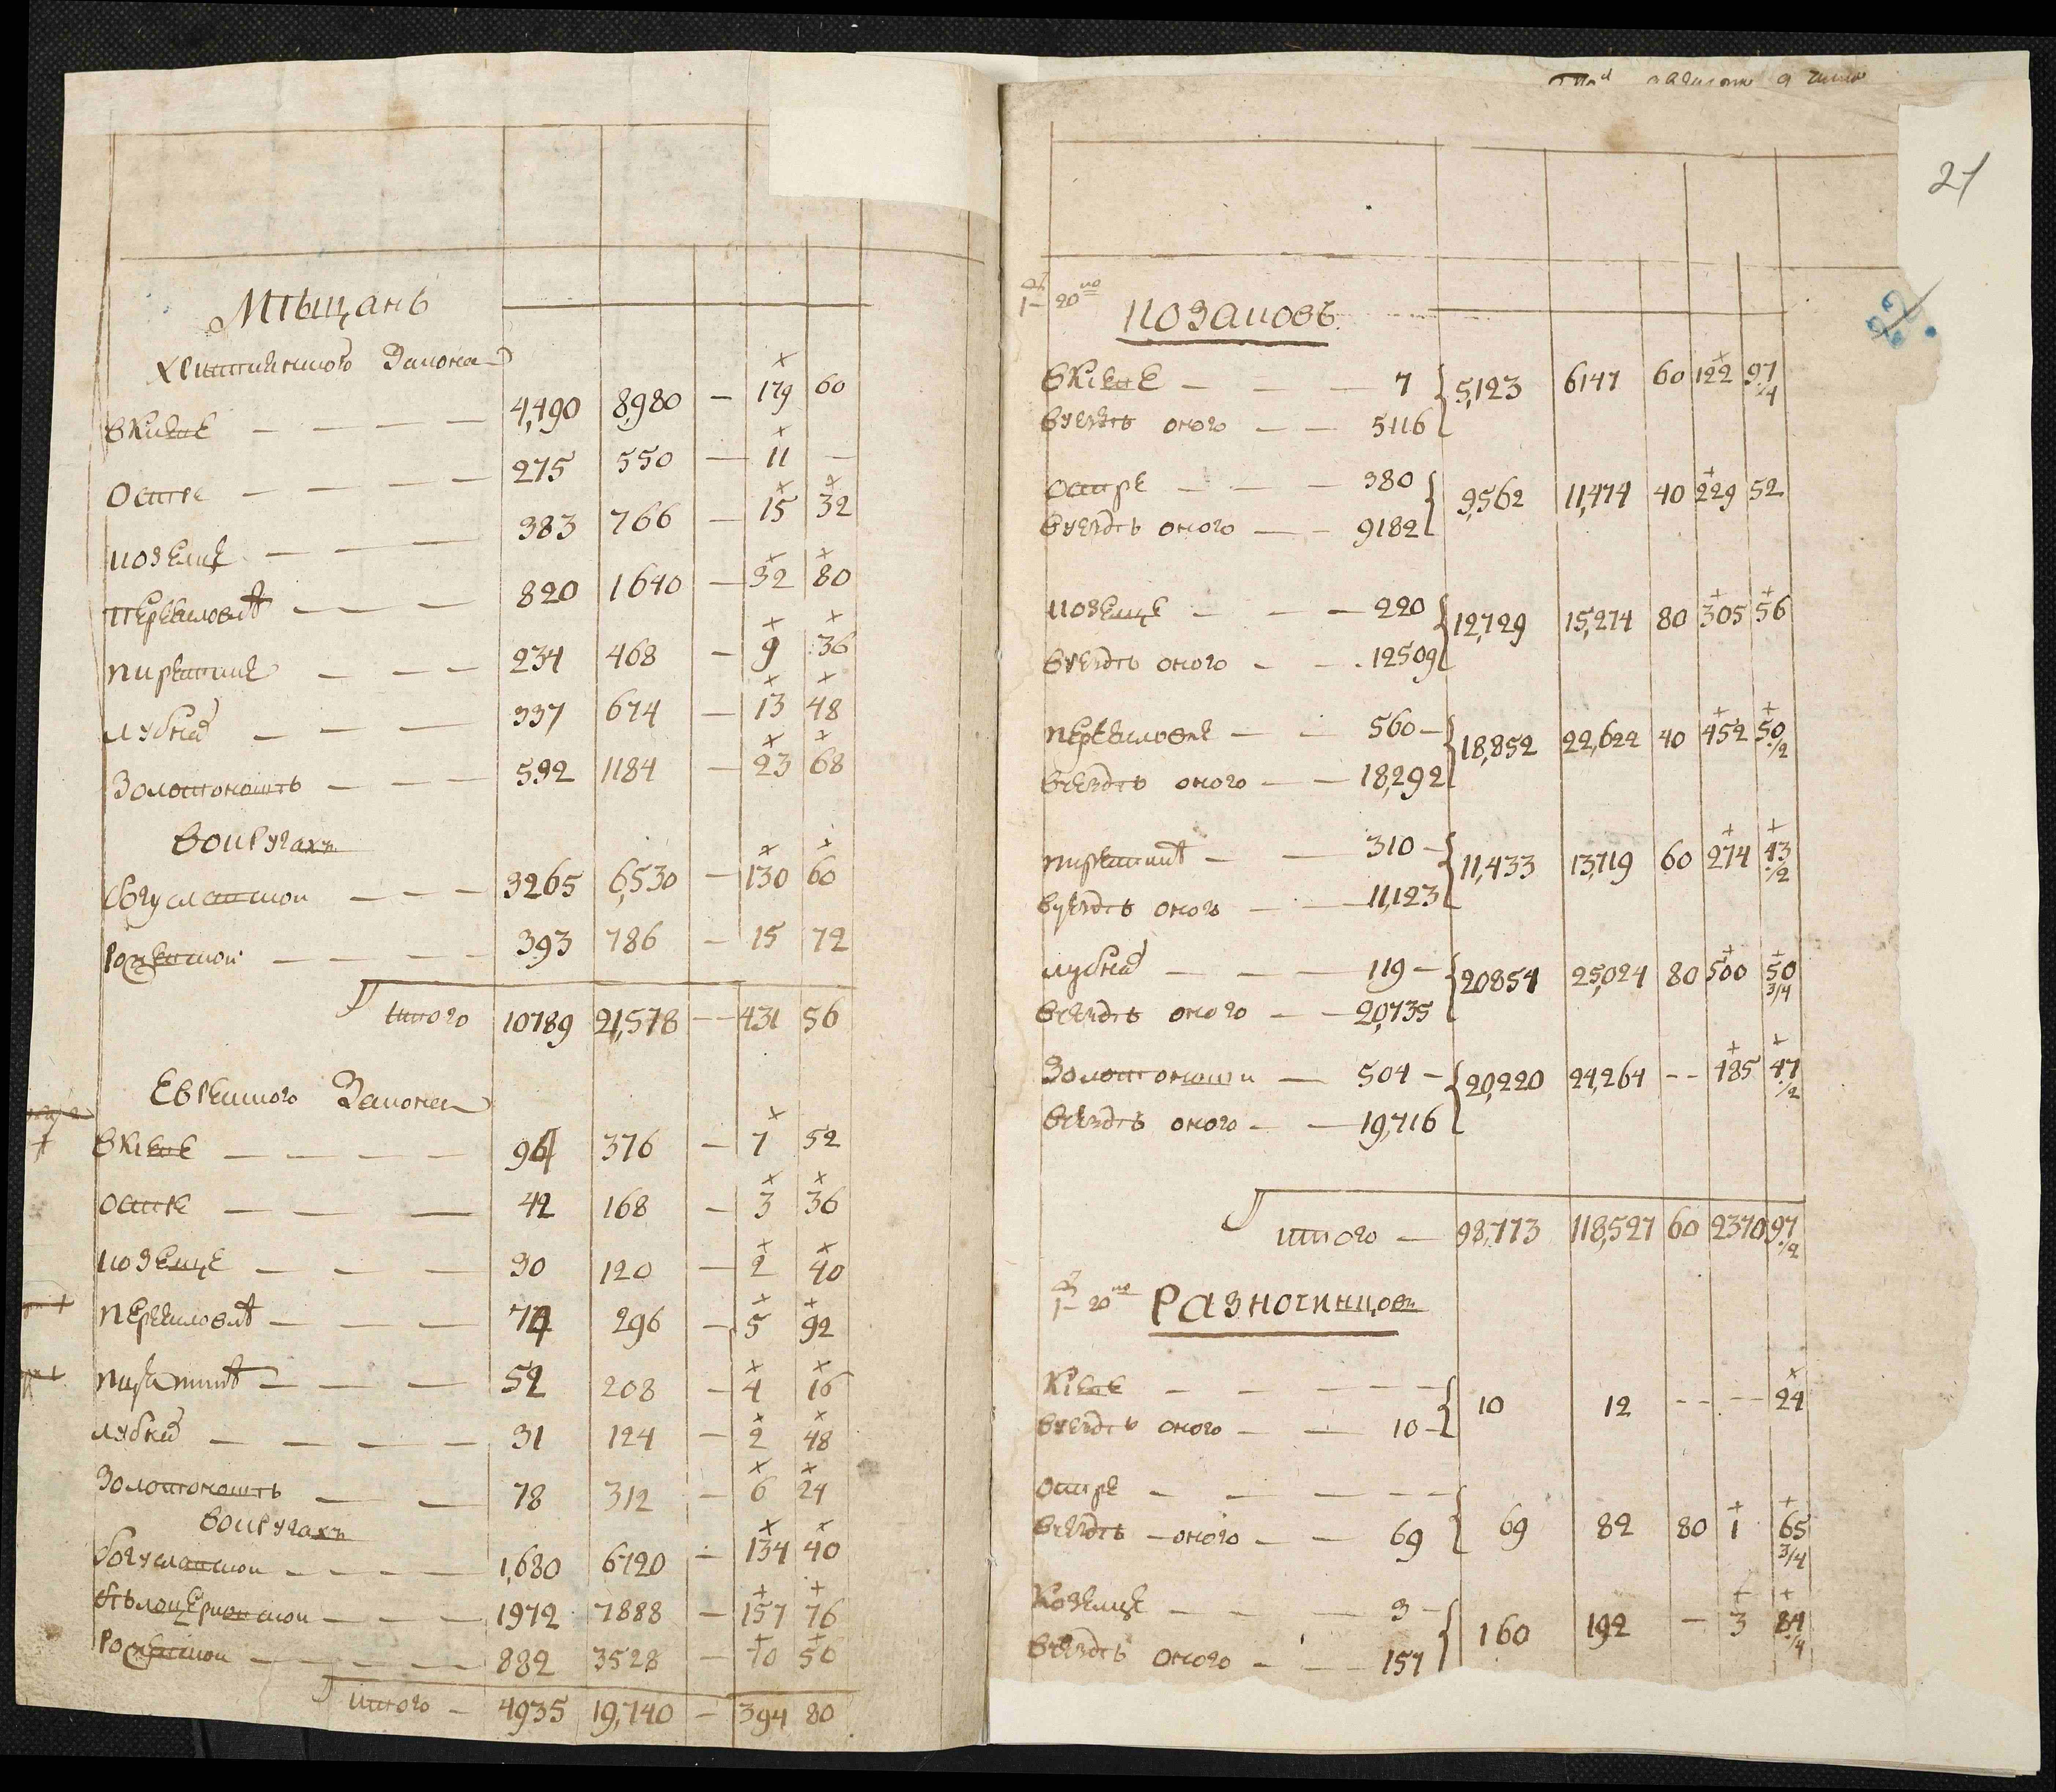 Мѣщанъ
Христианского Закона
в Киеве — — — — 4,490 8,980 — 179 60
Остре — — — — 275 550 — 11 —
козелце — — — 383 766 — 15 32
Переяславлѣ — — — 820 1640 — 32 80
пирятине — — — 234 468 — 9 36
лубнах — — — 337 674 — 13 48
Золотоношѣ — — — 592 1184 — 23 68
в округахъ
богуславской — — — 3265 6,530 — 130 60
рожевской — — — — 393 786 — 15 72
Итого 10789 21,578 — 431 56
Еврейского Закона
в Киеве — — — — 94 376 — 7 52
Остре — — — 42 168 — 3 36
козелце — — — 30 120 — 2 40
переяславлѣ — — — 74 296 — 5 92
пирятинѣ — — — 52 208 — 4 16
лубнах — — — — 31 124 — 2 48
Золотоношѣ — — 78 312 — 6 24
в округахъ
богуславской — — — — 1,680 6720 — 134 40
бѣлоцерковской — — — 1972 7888 — 157 76
рожевской — — — — 882 3528 — 70 56
итого — 4935 19,740 — 394 80
21
22.
1 — 20
козаковъ
в Киеве — — — 7 5,123 6147 60 122 97 1/4
в уездѣ оного — — 5116
Остре — — — 380 9,562 11,474 40 229 52
в уездѣ оного — — 9182
козелце — — — 220 12,729 15,274 80 305 56
в уездѣ оного — — 12509
переяславле — — 560 — 18,852 22,622 40 452 50 1/2
в уездѣ оного — — 18,292
пирятинѣ — — 310 — 11,433 13,719 60 274 43 1/2
в уездѣ оного — — 11,123
лубнах — — — 119 — 20854 25,024 80 500 50 3/4
в уездѣ оного — — 20,735
Золотоноши — 504 — 20,220 24,264 — — 485 47 1/2
в уездѣ оного — — 19,716
итого — 98,773 118,527 60 2370 97 1/2
1 — 20
Разночинцовъ
Киеве — — — — — 10 12 — — — — 24
в уездѣ оного — — 10 —
Остре — — — — — 69 82 80 1 65 3/4
в уездѣ — оного — — 69
Козелце — — — 3 — 160 192 — 3 84 1/4
в уездѣ оного — — — 157